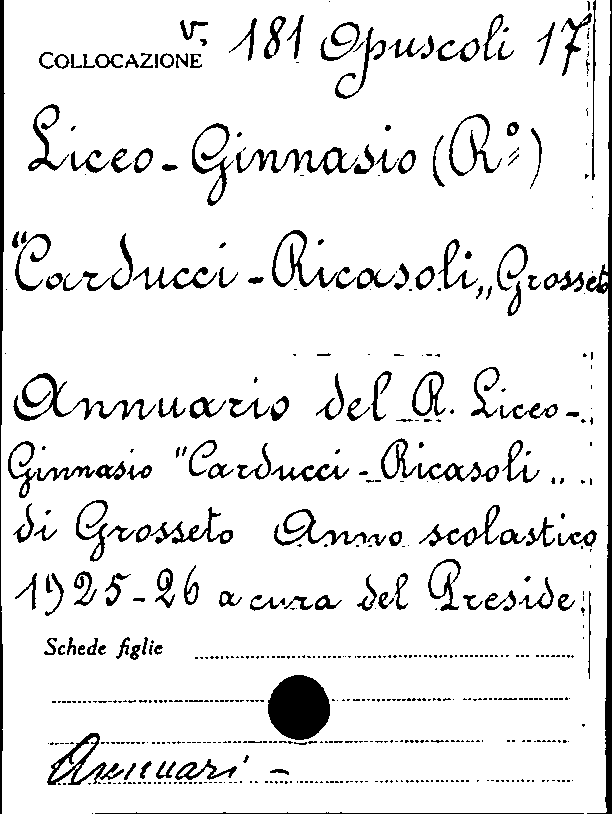 COLLOCAZIONE v. 181 Opuscoli 17
Liceo-Ginnasio (R°)
"Carducci-Ricasoli„ Grosseto
Annuario del R. Liceo-
Ginnasio "Carducci-Ricasoli„
di Grosseto Anno scolastico
1925-26 a cura del Preside.
Schede figlie
Annuari -